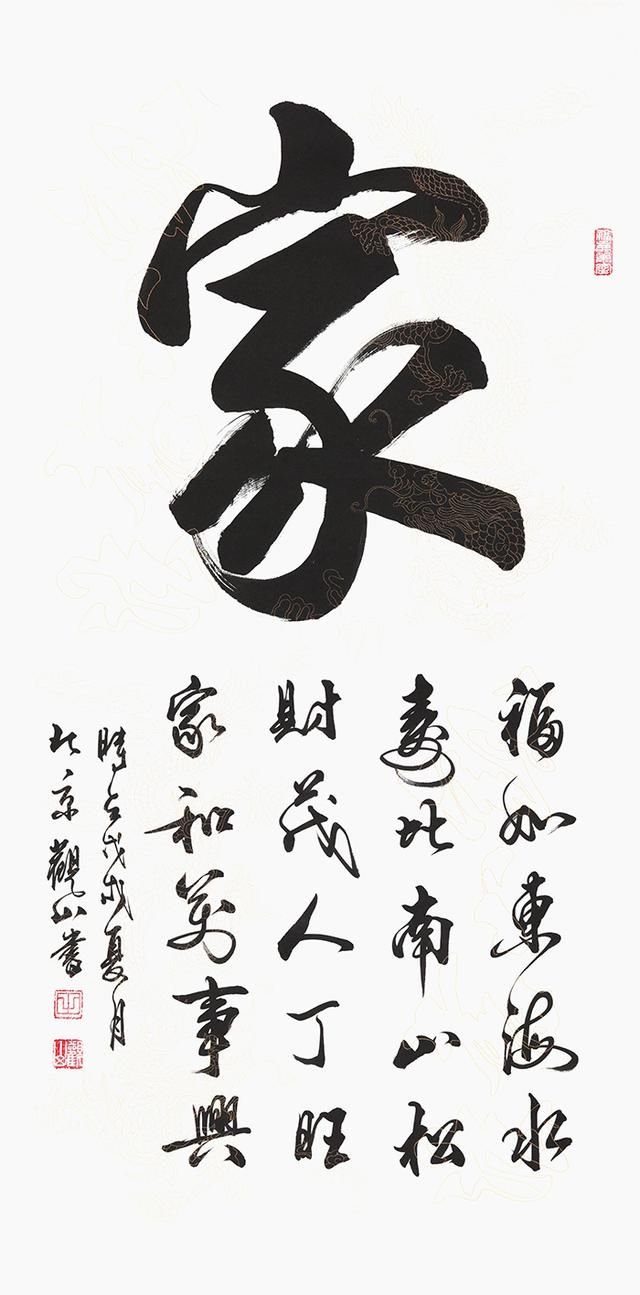 家
福如東海水
壽比南山松
財茂人丁旺
家和萬事興
時在戊戌夏月
北京觀山書